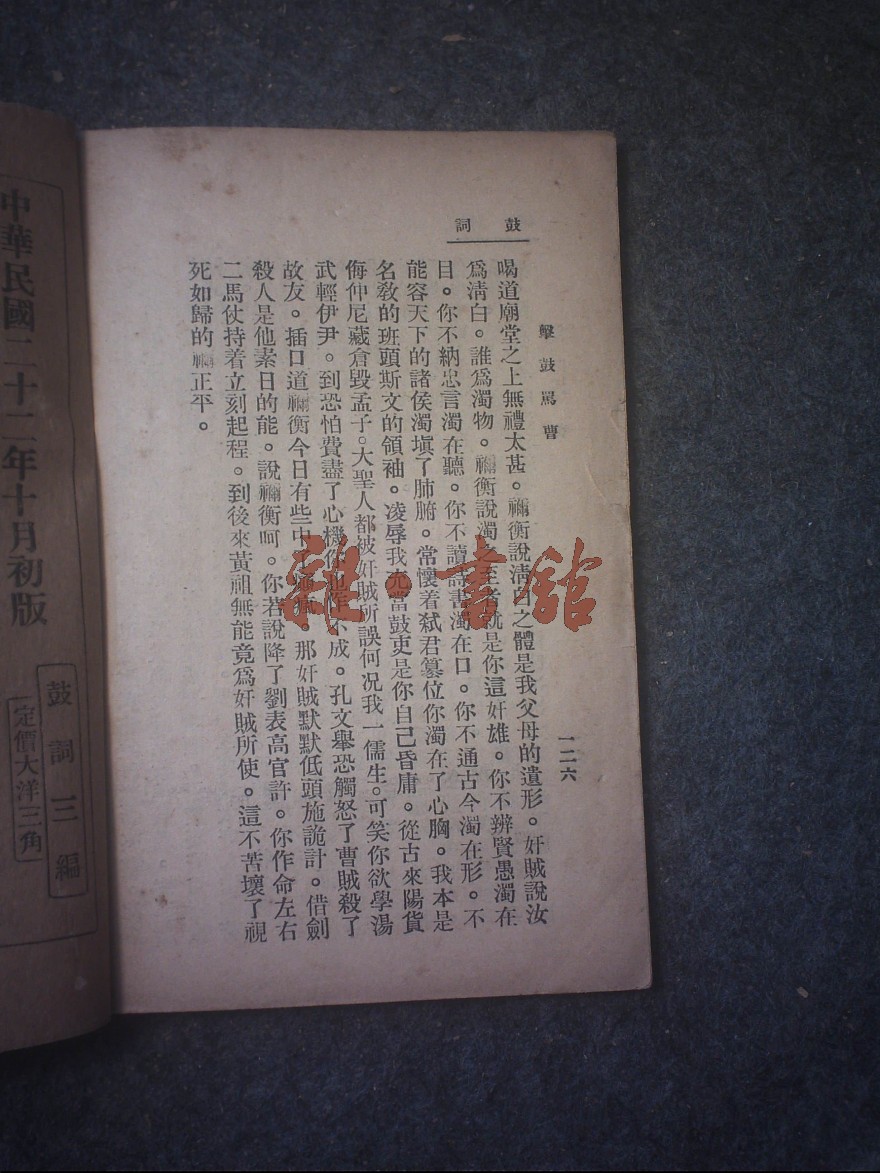 鼓詞
擊鼓罵曹
一二六
喝道廟堂之上無禮太甚。禰衡說淸白之體是我父母的遺形。奸賊說汝
爲淸白。誰爲濁物。禰衡說濁之至者就是你這奸雄。你不辨賢愚濁在
目。你不納忠言濁在聽。你不讀詩書濁在口。你不通古今濁在形。不
能容天下的諸侯濁塡了肺腑。常懷着弑君篡位你濁在了心胸。我本是
名敎的班頭斯文的領袖。凌辱我充當鼓吏是你自己昏庸。從古來陽貨
侮仲尼藏倉毀孟子。大聖人都被奸賊所誤何况我一儒生。可笑你欲學湯
武輕伊尹。到恐怕費盡了心機你也作不成。孔文舉恐觸怒了曹賊殺了
故友。插口道禰衡今日有些中瘋。那奸賊默默低頭施詭計。借劍
殺人是他素日的能。說禰衡呵。你若說降了劉表高官許。你作命左右
二馬伏持着立刻起程。到後來黃祖無能竟爲奸賊所使。這不苦壞了視
死如歸的禰正平。
雜·書館
中華民國二十二年十月初版
鼓詞三編
定價大洋三角